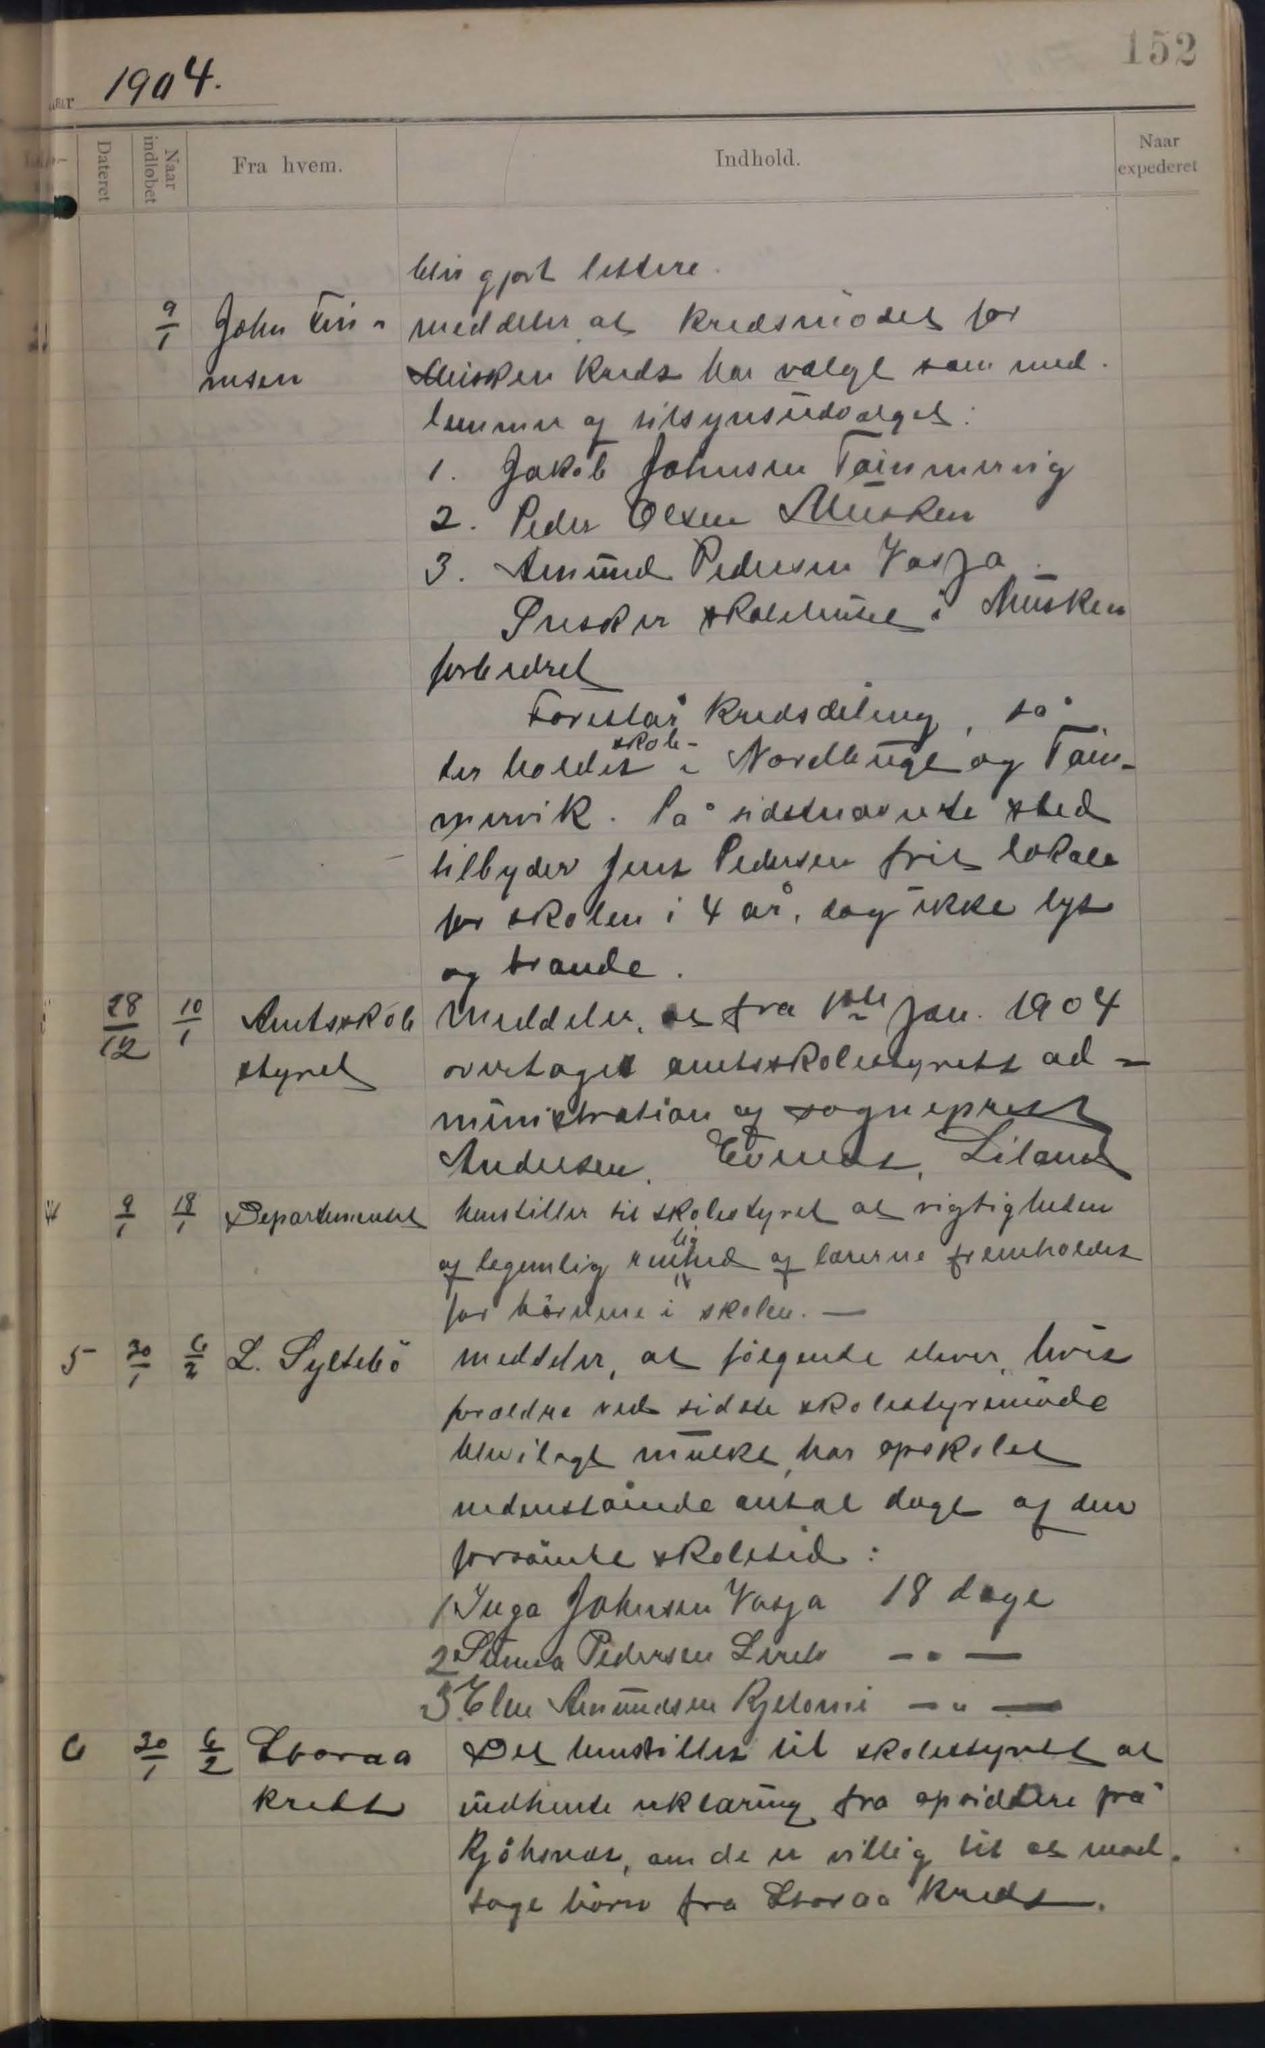 152
1904.
Dateret
Naar indløbet
Fra hvem.
Indhold.
Naar expederet
bliv gjort lettere.
9/1 John Fin-
nsen
meddeler, at kredsmødet for
Musken kreds har valgt som med-
lemmer af tilsynsudvalget:
1. Jakob Johnsen Tømmervig
2. Peder Olsen Musken
3. Amund Pedersen Vasja
Ønsker skolehuset i Musken
forbedret
Foreslår kredsdeling, så
der holdes skole i Nordbugt og Tøm-
mervik. På sidstnævnte sted
tilbyder Jens Pedersen frit lokale
for skolen i 4 år, dog ikke lys
og brande.
28/12 10/1 Amtsskole
styret
Meddeler, at fra 1ste Jan. 1904
overtages amtsskolestyrets ad-
ministration af sogneprest
Andersen, Evenes, Liland
4 9/1 18/1 Departementet
henstiller til skolestyret at vigtigheden
af legemlig renlighed af lærerne fremholdes
for børnene i skolen. —
5 30/1 6/2 L. Syltebö
meddeler, at følgende elever, hvis
forældre ved sidste skolestyremøde
blev ilagt mulkt, har opskolet
nedenstående antal dage af den
forsömte skoletid:
1 Inga Johnsen Vasja 18 dage
2 Pedersen — " —
3 Elen Amundsen — " —
6 30/1 6/2 Storaa
krets
Det henstilles til skolestyret at
indhente erklæring fra opsiddere på
Kjöbsnæs, om de er villig til at mod-
tage börn fra Storaa kreds.